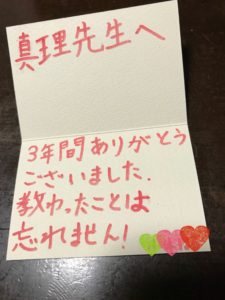 真理先生へ
3年間ありがとう
ございました.
教わったことは
忘れません!